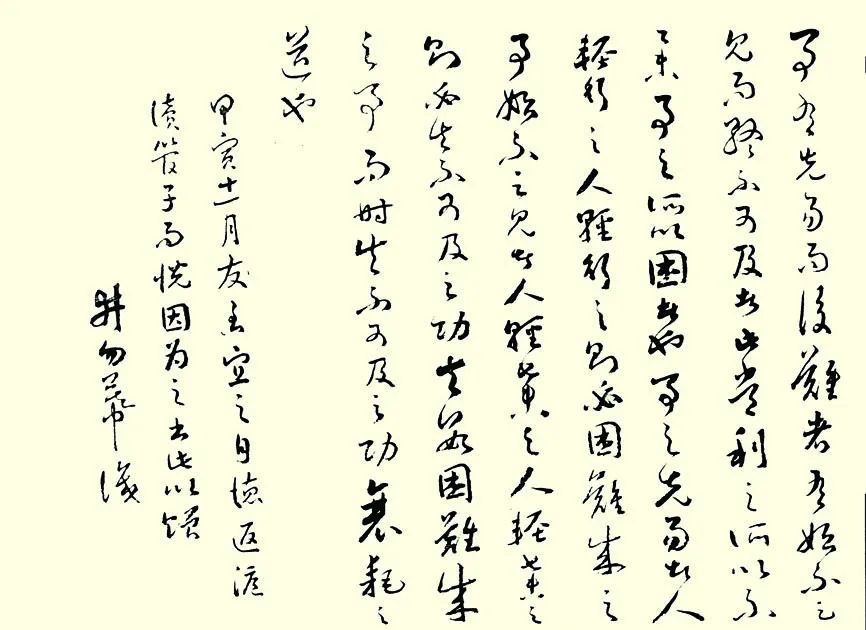 事有先易而後難者有始不足
見而終不可及者此常利之所以不
舉事之所以困者也事之先易者人
輕行之人輕行之則必困難成之
事始不足見者人輕棄之人輕棄之
則必失不可及之功夫數困難成
之事而時失不可及之功衰耗之
道也
甲寅十一月友宜之自德返滬
讀管子而悅因为之书此以贈
井勿幕識